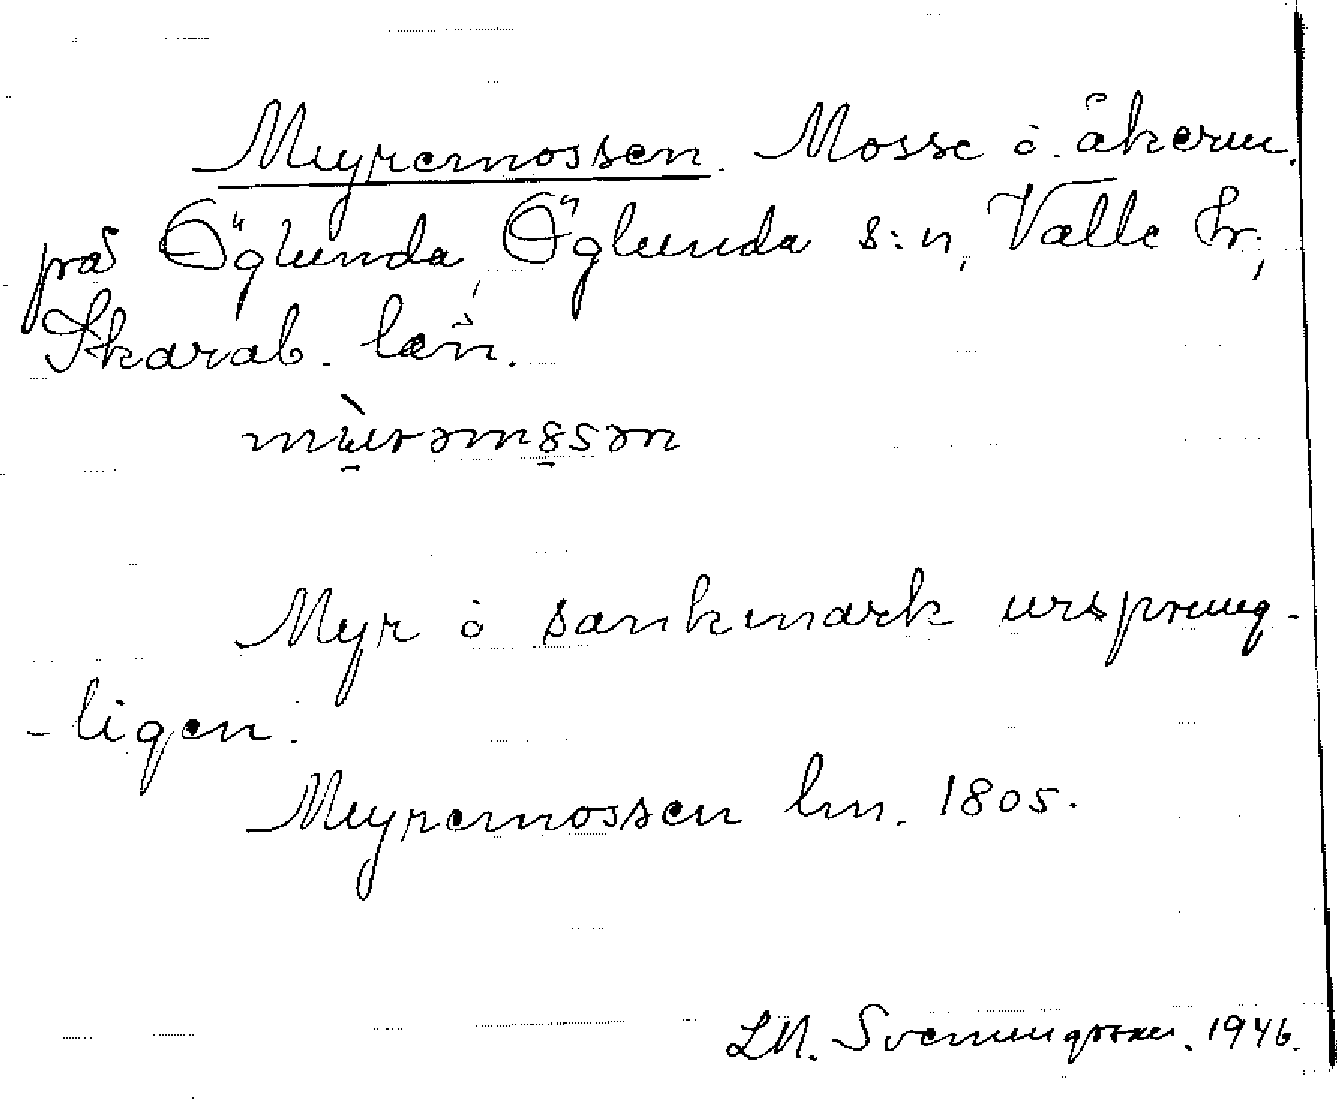 Myremossen. Mosse o. åkerm.
på Öglunda, Öglunda s:n, Valle hr,
Skarab. län.
Myr o sankmark ursprung-
-ligen.
Myremossen lm. 1805.
L.M. Svenungsson. 1946.